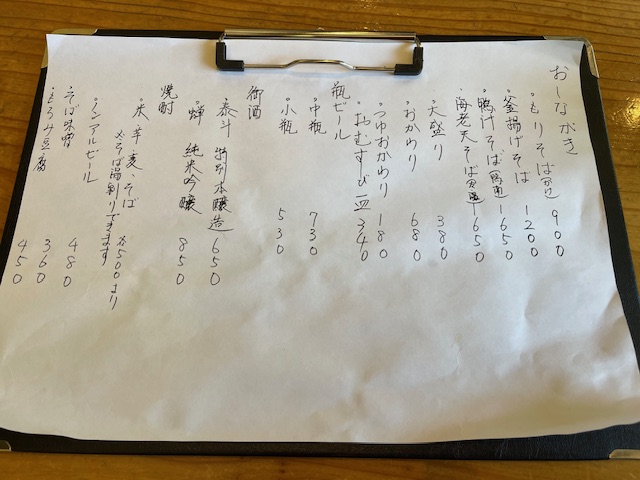 おしながき
・もりそば(冷) 900
・釜揚げそば 1200
・鴨汁そば(鴨肉) 1650
・海老天そば(温) 1650
・大盛り 380
・おかわり 680
・つゆおかわり 180
・おむすび一皿 340
瓶ビール
・中瓶 730
・小瓶 530
御酒
・泰斗 特別本醸造 650
・蝉 純米吟醸 850
焼酎
・米、芋、麦、そば 各500より
※そば湯割りできます
・ノンアルビール 480
・そば味噌 360
・もろみ豆腐 450